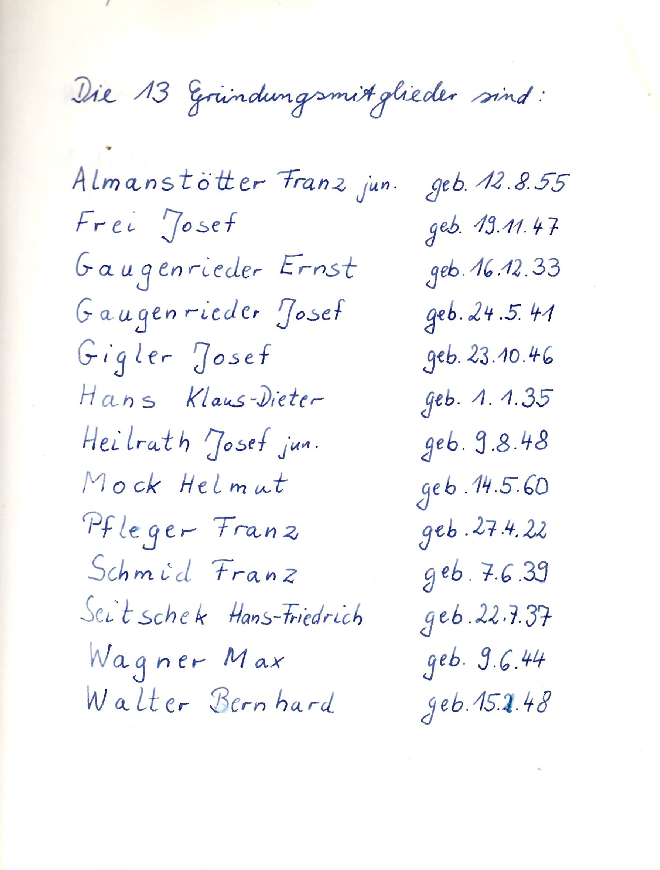 Die 13 Gründungsmitglieder sind:
Almanstötter Franz jun. geb. 12.8.55
Frei Josef geb. 19.11.47
Gaugenrieder Ernst geb. 16.12.33
Gaugenrieder Josef geb. 24.5.41
Gigler Josef geb. 23.10.46
Hans Klaus-Dieter geb. 1.1.35
Heilrath Josef jun. geb. 9.8.48
Mock Helmut geb. 14.5.60
Pfleger Franz geb. 27.4.22
Schmid Franz geb. 7.6.39
Seitschek Hans-Friedrich geb. 22.7.37
Wagner Max geb. 9.6.44
Walter Bernhard geb.